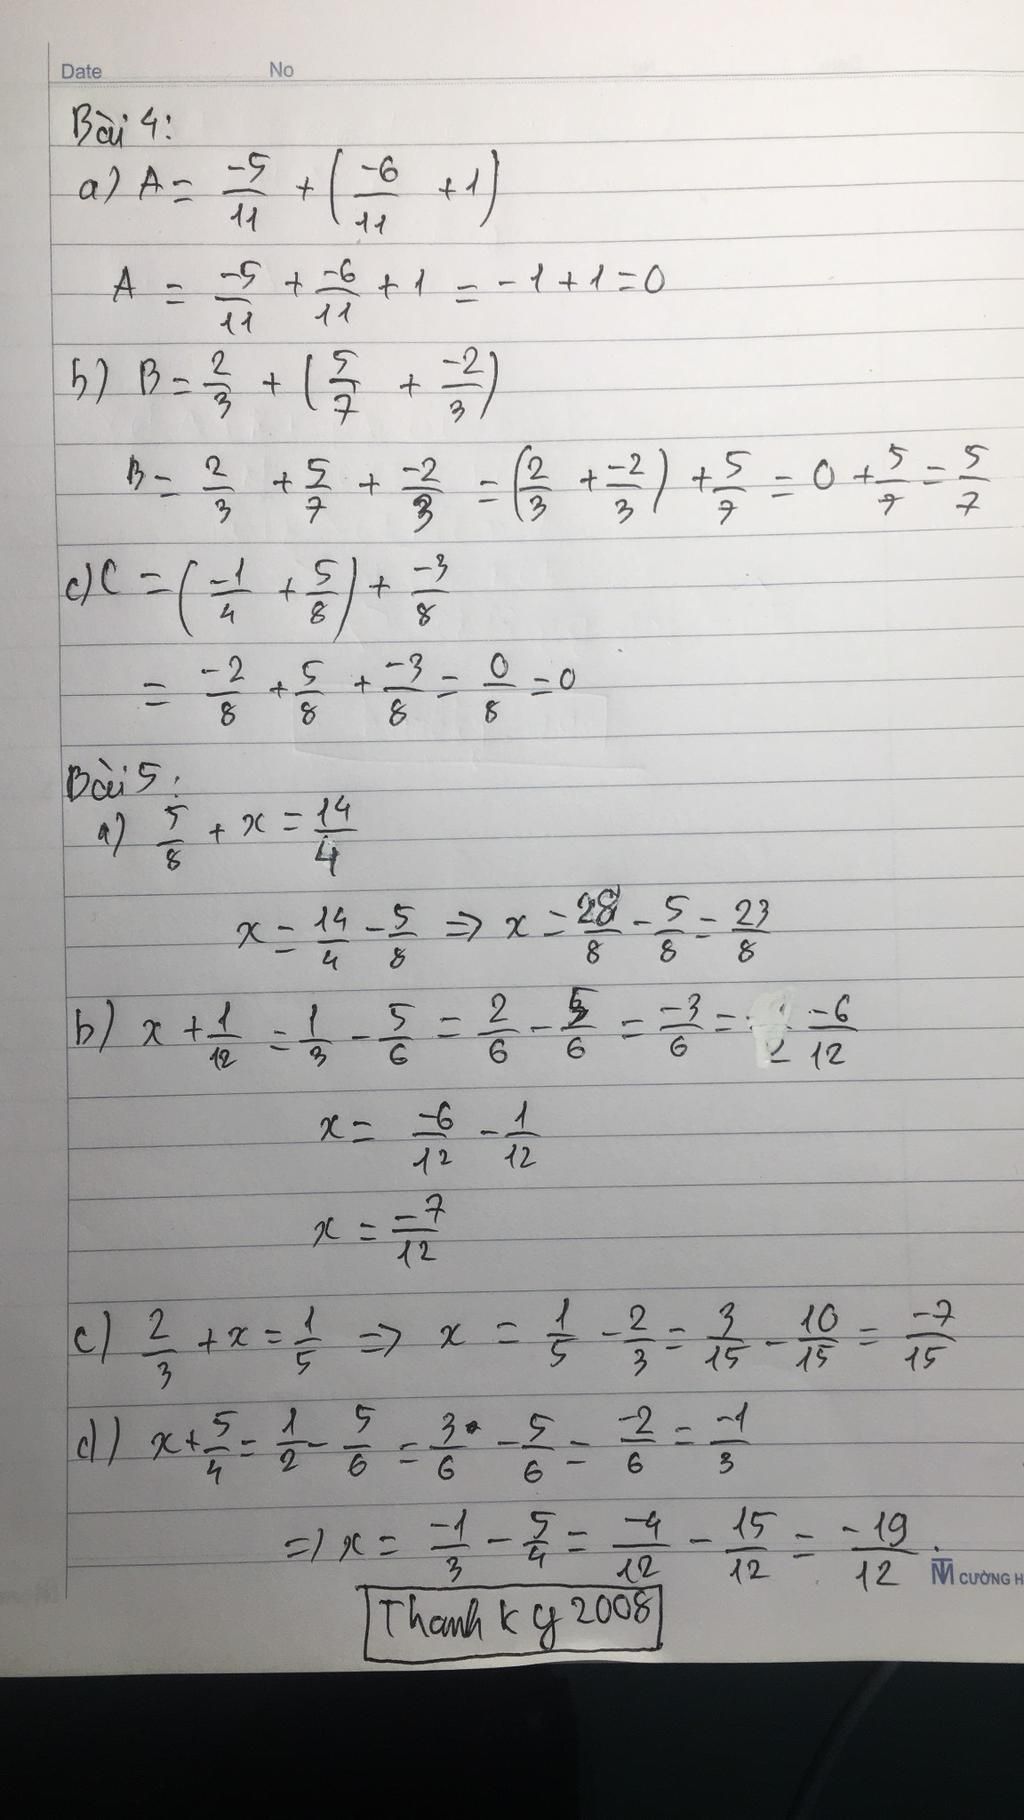 Date No
Bài 4:
a) A = -5/11 + (-6/11 + 1)
A = -5/11 + -6/11 + 1 = -1 + 1 = 0
b) B = 2/3 + (5/7 + -2/3)
B = 2/3 + 5/7 + -2/3 = (2/3 + -2/3) + 5/7 = 0 + 5/7 = 5/7
c) C = (-1/4 + 5/8) + -3/8
= -2/8 + 5/8 + -3/8 = 0/8 = 0
Bài 5:
a) 5/8 + x = 14/4
x = 14/4 - 5/8 => x = 28/8 - 5/8 = 23/8
b) x + 1/12 = 1/3 - 5/6 = 2/6 - 5/6 = -3/6 = -6/12
x = -6/12 - 1/12
x = -7/12
c) 2/3 + x = 1/5 => x = 1/5 - 2/3 = 3/15 - 10/15 = -7/15
d) x + 5/4 = 1/2 - 5/6 = 3/6 - 5/6 = -2/6 = -1/3
=> x = -1/3 - 5/4 = -4/12 - 15/12 = -19/12.
CƯỜNG H
Thanh k y 2008